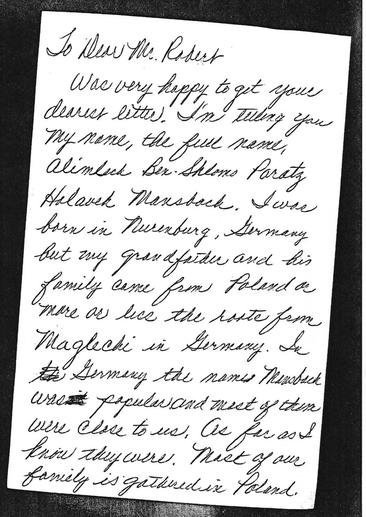 To Dear Mr. Robert
Was very happy to get your
dearest letter. I'm telling you
my name, the full name,
Alimlech Ben-Shloms Paratz
Holavek Mansbach. I was
born in Nurenburg, Germany
but my grandfather and his
family came from Poland or
more or less the roots from
Maglechi in Germany. In
Germany the names Mansbach
was popular and most of them
were close to us. As far as I
know they were. Most of our
family is gathered in Poland.